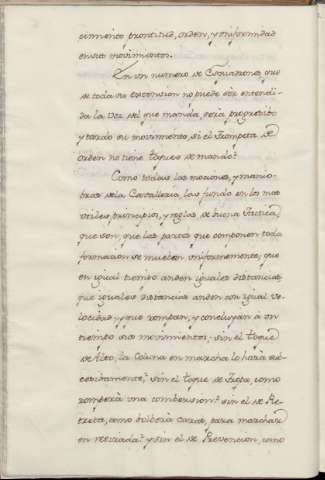 cimiento prontitud, orden, y uniformidad
en sus movimientos.
En un numero de Esquadrones, que
de toda su extension no puede ser entendi-
da la voz del que manda, será progresibo
y tardo su movimiento, si el Trompeta de
orden no tiene toques de mando.
Como todas las naciones, y manio-
bras de la Cavalleria, las fundo en los mas
solidos, principios, y reglas de buena Tactica,
que son, que las partes que componen toda
formacion se mueben uniformemente, que
en igual tiempo anden iguales distancias,
que iguales distancias anden con igual ve-
locidad, y que rompan, y concluyan à un
tiempo sus movimientos; sin el toque
de Alto, la Coluna en marcha lo hará su-
cesibamente, sin el toque de Tropa, como
romperá una combersion, sin el de Re-
treta, como bolberá caras, para marchar
en retirada, y sin el de Prevencion, como